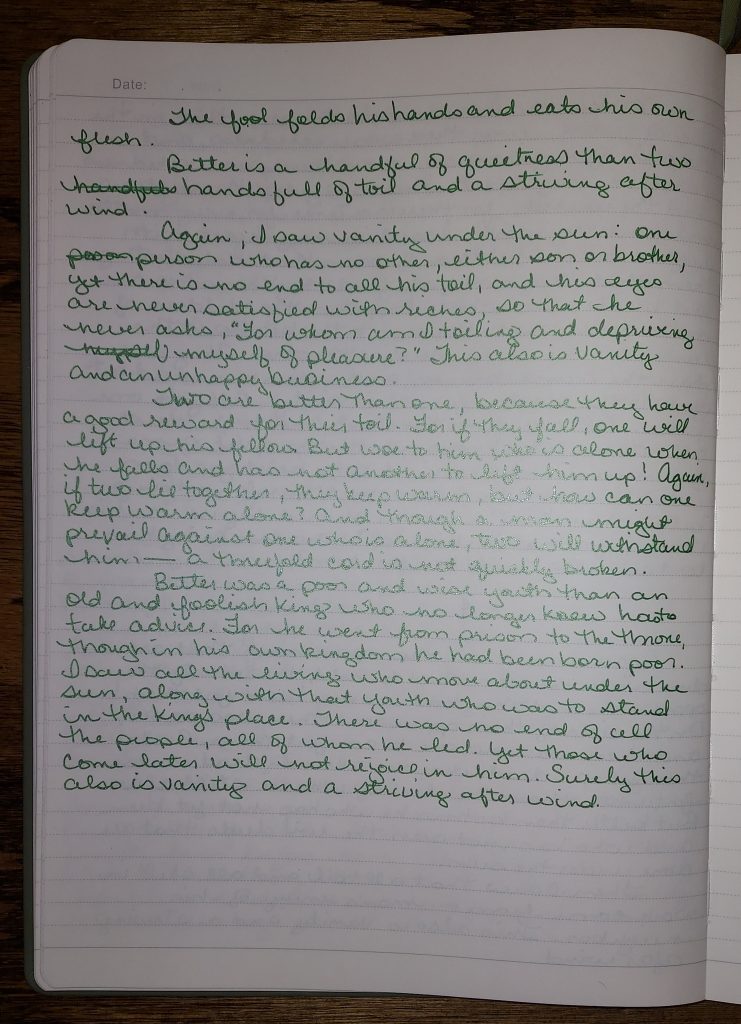 Date:
The fool folds his hands and eats his own
flesh.
Better is a handful of quietness than two
handfuls hands full of toil and a striving after
wind.
Again, I saw vanity under the sun: one
person person who has no other, either son or brother,
yet there is no end to all his toil, and his eyes
are never satisfied with riches, so that he
never asks, "For whom am I toiling and depriving
myself myself of pleasure?" This also is vanity
and an unhappy business.
Two are better than one, because they have
a good reward for their toil. For if they fall, one will
lift up his fellow. But woe to him who is alone when
he falls and has not another to lift him up! Again,
if two lie together, they keep warm, but how can one
keep warm alone? And though a man might
prevail against one who is alone, two will withstand
him — a threefold cord is not quickly broken.
Better was a poor and wise youth than an
old and foolish king who no longer knew how to
take advice. For he went from prison to the throne,
though in his own kingdom he had been born poor.
I saw all the living who move about under the
sun, along with that youth who was to stand
in the king's place. There was no end of all
the people, all of whom he led. Yet those who
come later will not rejoice in him. Surely this
also is vanity and a striving after wind.